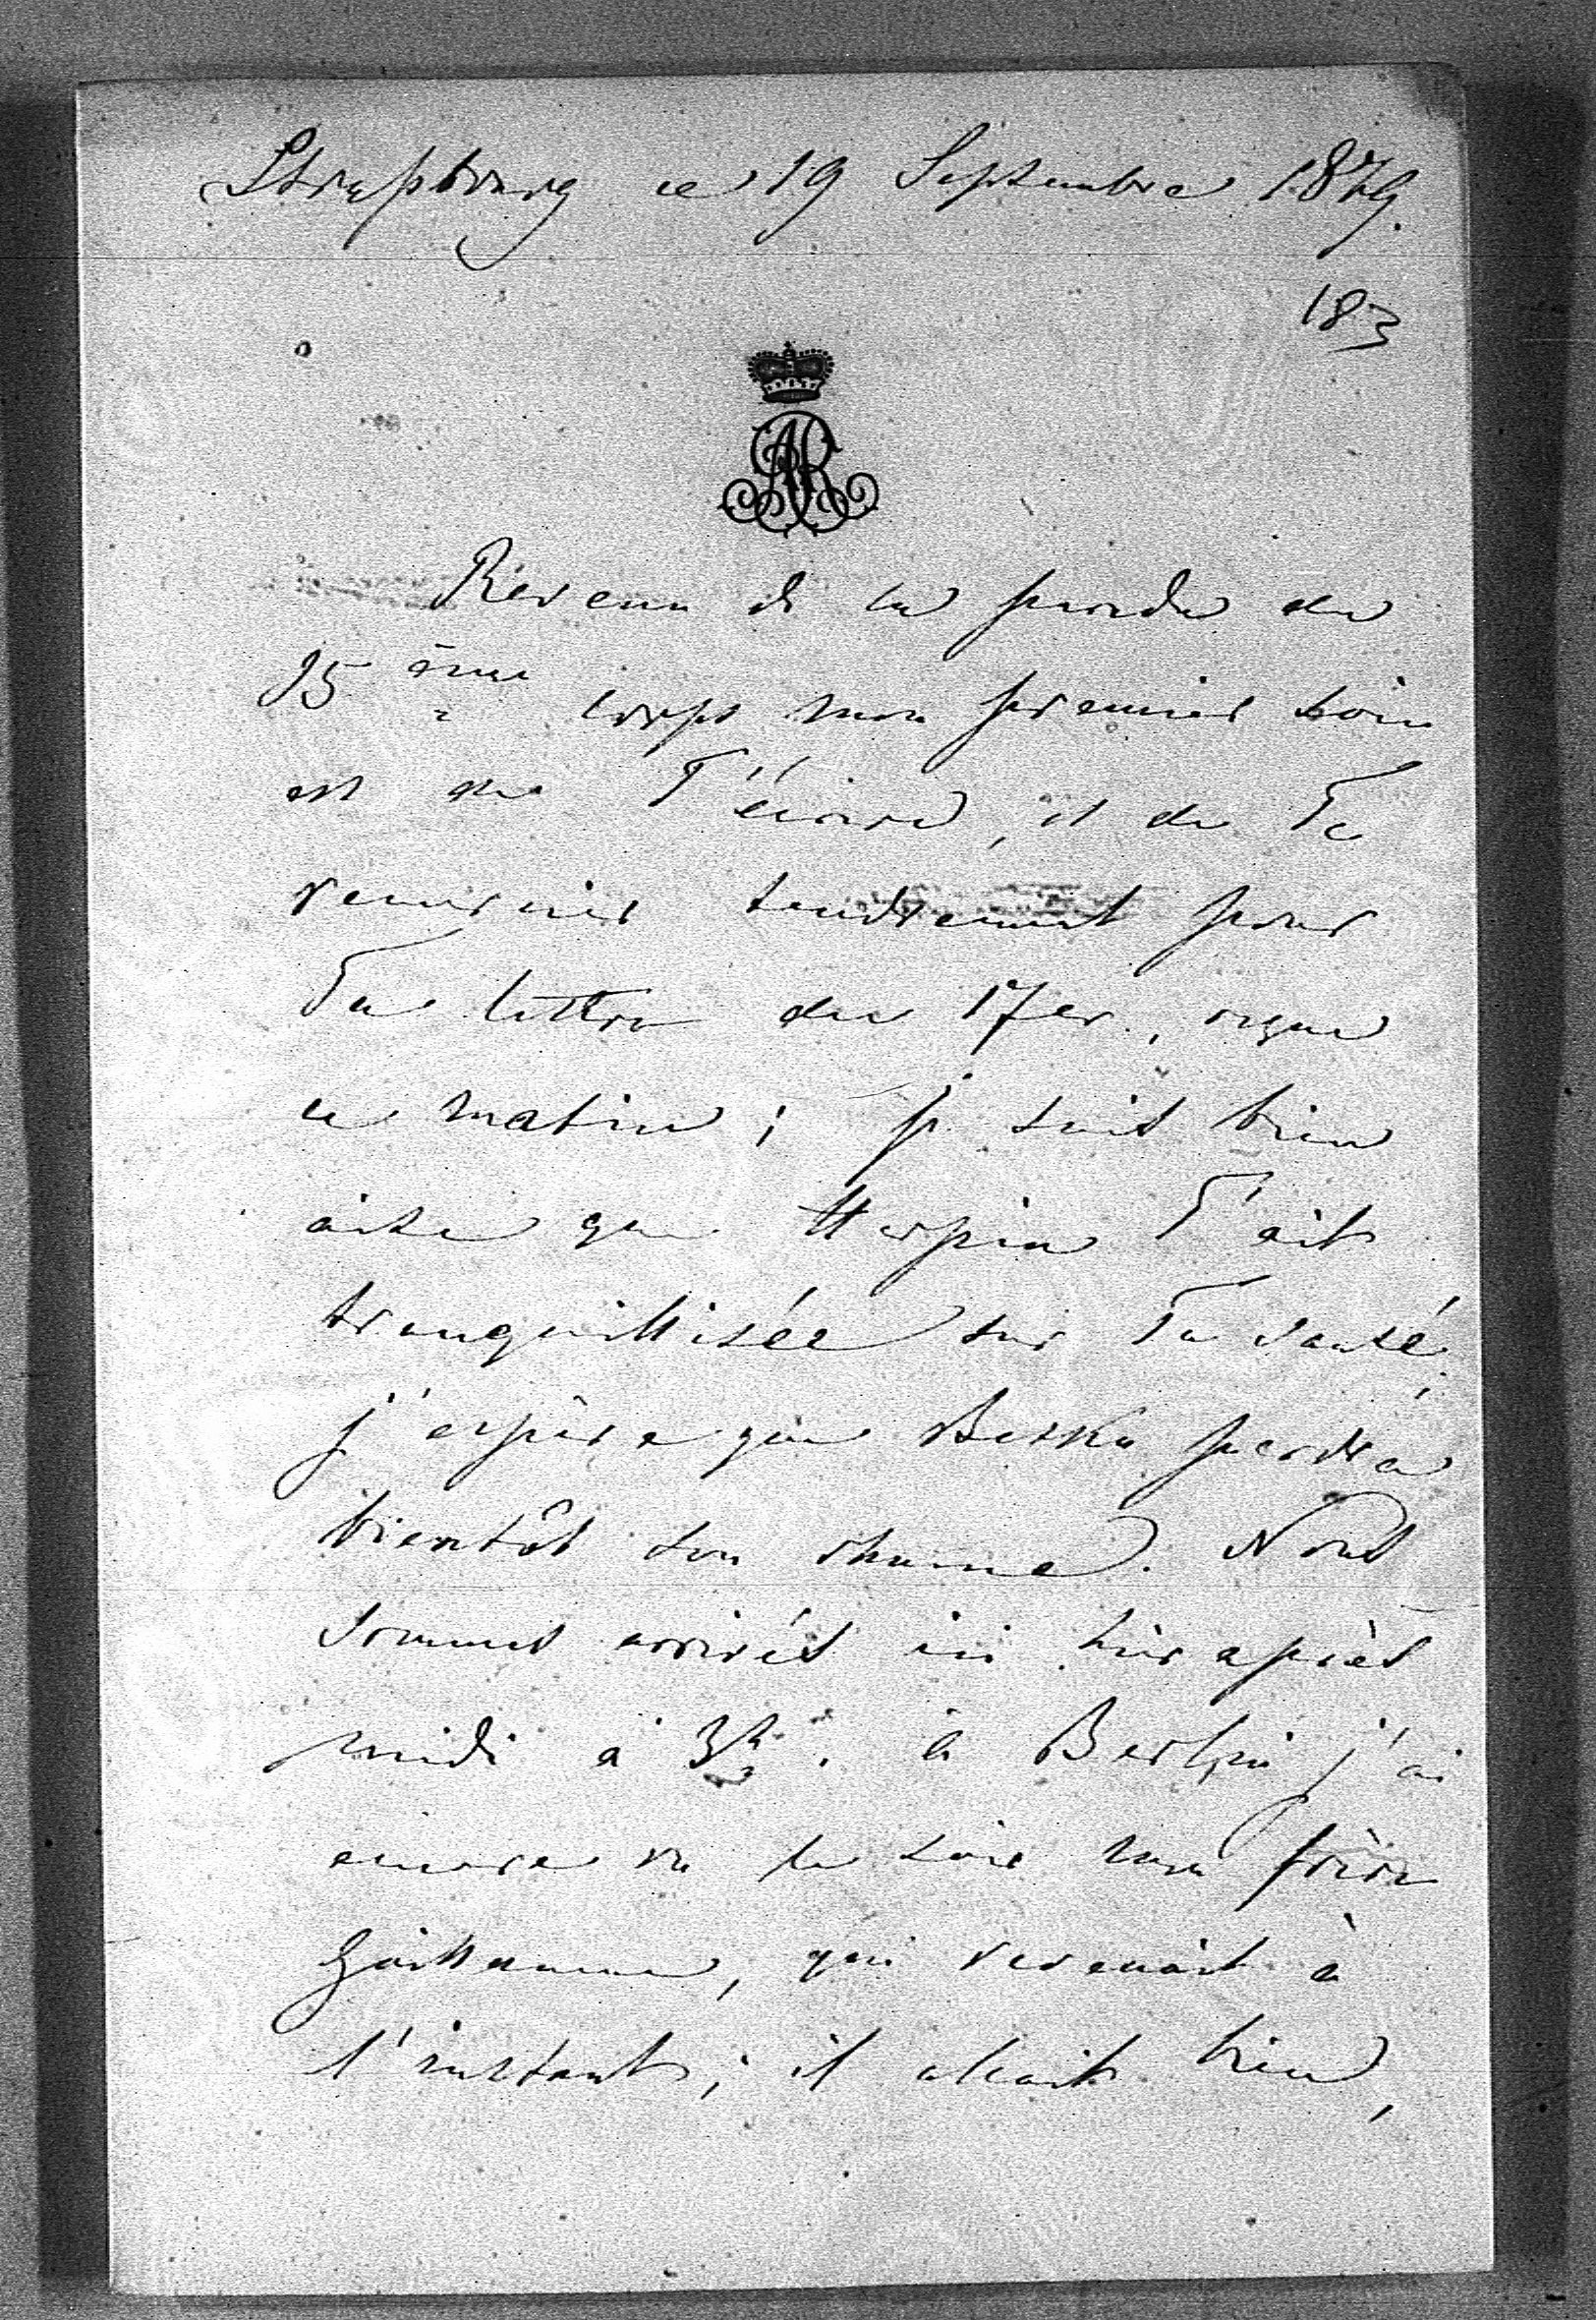 Straßbourg ce 19 Septembre 1879.
183
AR
Revenu de la parade du
15ème corps mon premier soin
est de T'écrire, et de Te
remercier tendrement pour
Ta lettre du 17 cr., reçue
ce matin; je suis bien
aise que Herpin T'ait
tranquillisée sur Ta santé,
j'espère que perdra
bientôt son rhume. Nous
sommes arrivés ici hier après
midi à 3h. à Berlin j'ai
encore vu le soir mon frère
Guillaume, qui revenait à
l'instant; il allait bien,